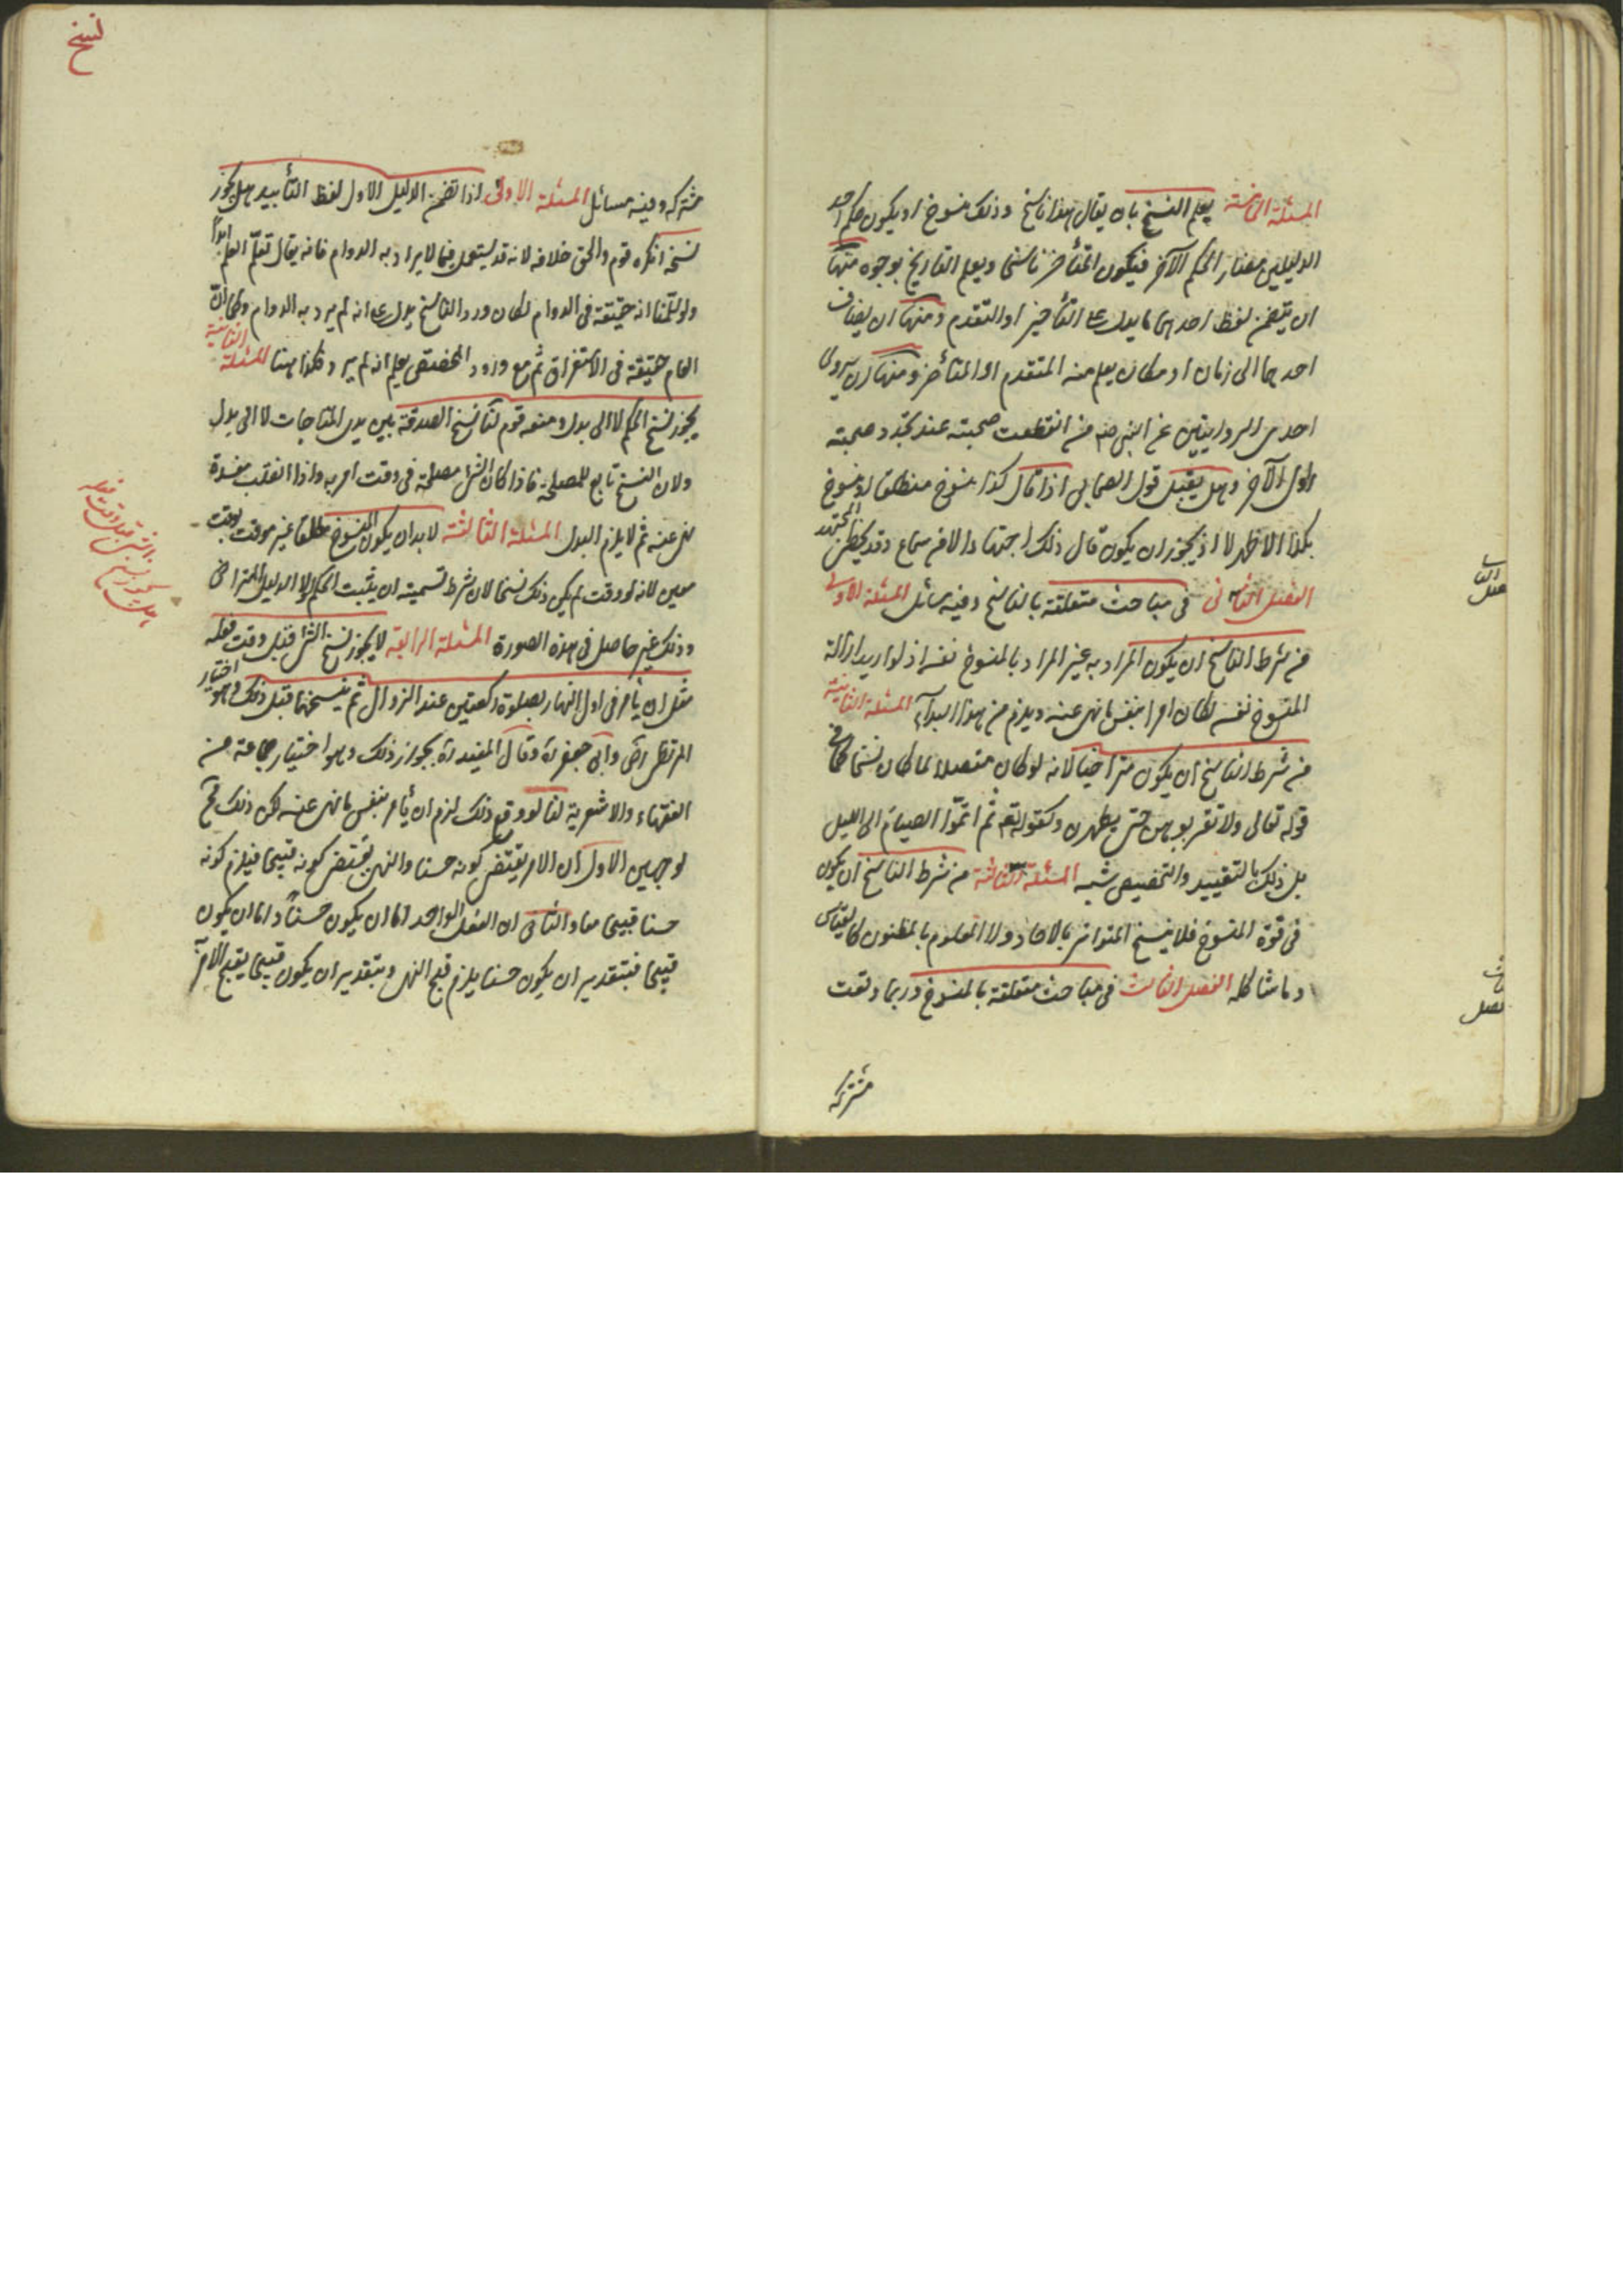 المسئلة الخامسة يعلم النسخ بان يقال هذا ناسخ وذلك منسوخ او يكون حكم احد
الدليلين مضاد الحكم الآخر فيكون المتأخر ناسخا ويعلم التاريخ بوجوه منها
ان يتضمن لفظ احدهما ما يدل على التأخير او التقدم ومنها ان يضاف
احدهما الى زمان او مكان يعلم منه المتقدم او المتأخر ومنها ان يروى
احدى الروايتين عن النبى صم من انقطعت صحبته عند تجدد صحبته
راوى الآخر وهل يقبل قول الصحابى اذا قال كذا منسوخ منطلقا او منسوخ
بكذا الاظهر لا اذ يجوز ان يكون قال ذلك اجتهادا لا عن سماع وقد يخطى المجتهد
الفصل الثانى فى مباحث متعلقة بالناسخ وفيه مسائل المسئلة الاولى
من شرط الناسخ ان يكون المراد به غير المراد بالمنسوخ نفسه اذ لو اريد ازالة
المنسوخ نفسه لكان امرا بنفس ما نهى عنه ويلزم من هذا البداء المسئلة الثانية
من شرط الناسخ ان يكون متراخيا لانه لو كان متصلا لما كان نسخا كما فى
قوله تعالى ولا تقربوهن حتى يطهرن وكقوله تعم ثم اتموا الصيام الى الليل
بل ذلك بالتقييد والتخصيص شبه المسئلة الثالثة من شرط الناسخ ان يكون
فى قوة المنسوخ فلا ينسخ المتواتر بالاحاد ولا المعلوم بالمظنون كالقياس
وما شاكله الفصل الثالث فى مباحث متعلقة بالمنسوخ وربما وقعت
مشتركه
نسخ
مشتركه وفيه مسائل المسئلة الاولى اذا تضمن الدليل الاول لفظ التأبيد هل يجوز
نسخه انكره قوم والحق خلافه لانه قد يستعمل فيما لا يراد به الدوام فانه يقال تعلم العلم ابدا
ولو سلمنا انه حقيقة فى الدوام لكان ورد الناسخ يدل على انه لم يرد به الدوام وكما ان
العام حقيقة فى الاستغراق ثم مع ورود المخصص يعلم انه لم يرد فكذا هنا المسئلة الثانية
يجوز نسخ الحكم لا الى بدل ومنعه قوم لنا نسخ الصدقة بين يدى المناجات لا الى بدل
ولان النسخ تابع للمصلحة فاذا كان الشى مصلحة فى وقت امر به واذا انقلب مفسدة
نهى عنه ثم لا يلزم البدل المسئلة الثالثة لا بد ان يكون المنسوخ مطلقا غير موقت بوقت
معين لانه لو وقت لم يكن ذلك نسخا لان شرط تسميته ان يثبت الحكم لولا الدليل المتراخى
وذلك غير حاصل فى هذه الصورة المسئلة الرابعة لا يجوز نسخ الشى قبل وقت فعله
مثل ان يأمر فى اول النهار بصلوة ركعتين عند الزوال ثم ينسخها قبل ذلك وهو اختيار
المرتضى رضى وابى جعفر ره وقال المفيد ره بجواز ذلك وهو اختيار جماعة من
الفقهاء والاشعرية لنا لو وقع ذلك لزم ان يأمر بنفس ما نهى عنه لكن ذلك قبح
لوجهين الاول ان الامر يقتضى كونه حسنا والنهى يقتضى كونه قبيحا فيلزم كونه
حسنا قبيحا معا والثانى ان الفعل الواحد اما ان يكون حسنا واما ان يكون
قبيحا فبتقدير ان يكون حسنا يلزم قبح النهى وبتقدير ان يكون قبيحا يقبح الامر